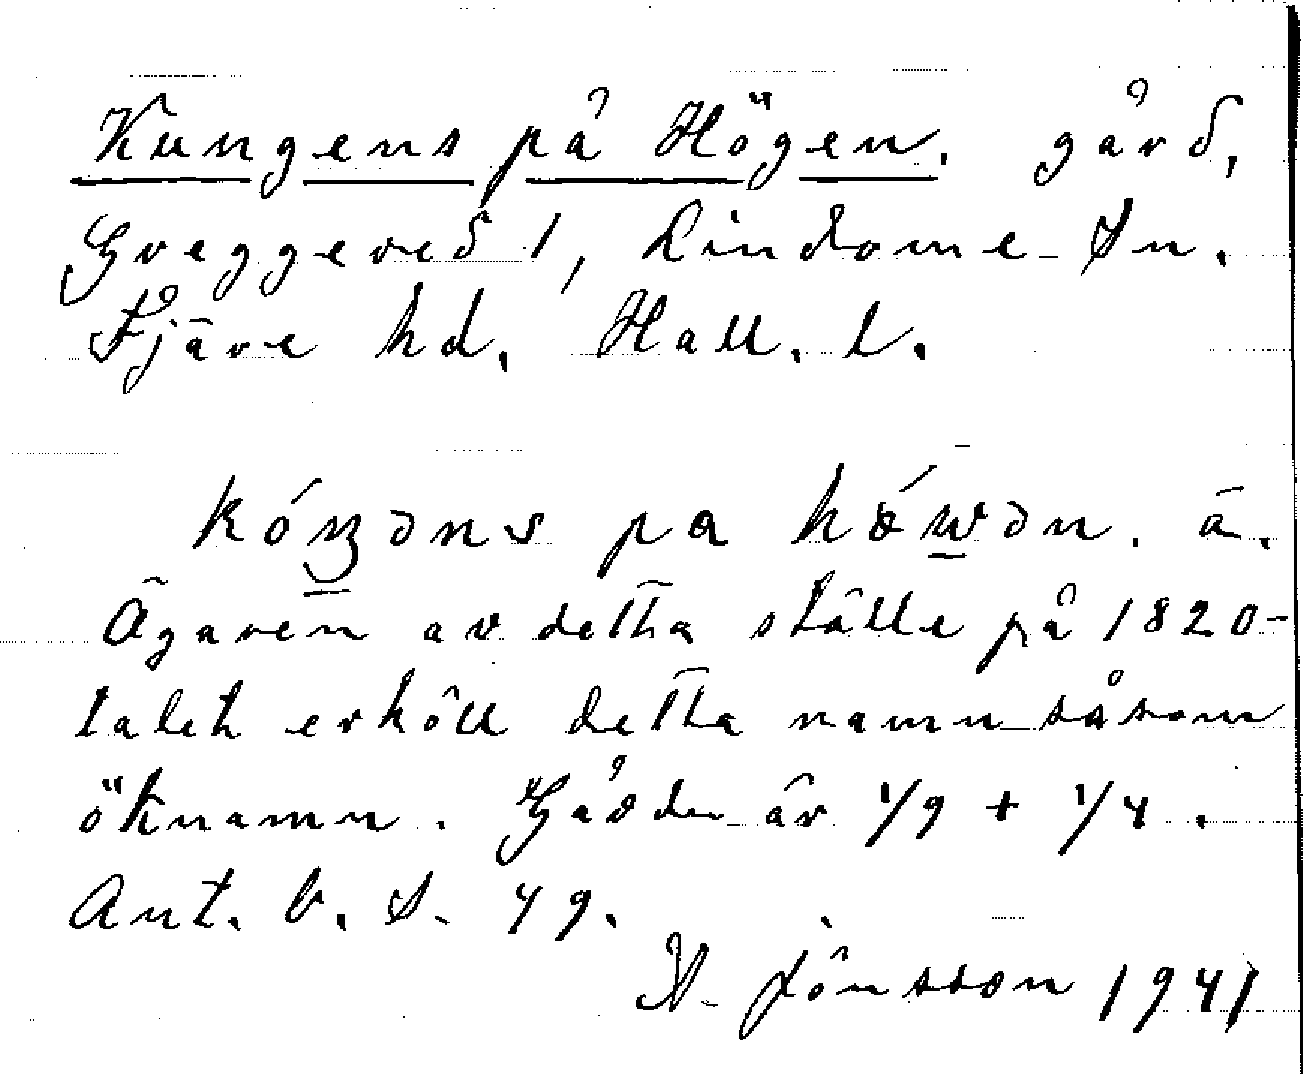 Kungens på Högen. gård,
Greggered 1, Lindome Sn.
Fjäre hd. Hall. l.
kóŋəns pa hǿwən. ä.
Ägaren av detta ställe på 1820-
talet erhöll detta namn såsom
öknamn. Gården är 1/9 + 1/4.
Ant. b. S. 49.
N. Jönsson 1941